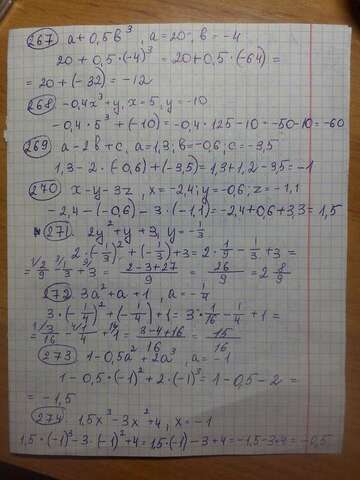 267 a+0,5b³, a=20, b=-4
20+0,5·(-4)³ = 20+0,5·(-64) =
= 20+(-32) = -12
268 -0,4x³+y, x=5, y=-10
-0,4·5³+(-10)=-0,4·125-10=-50-10=-60
269 a-2b+c, a=1,3; b=-0,6; c=-3,5
1,3-2·(-0,6)+(-3,5)=1,3+1,2-3,5=-1
270 x-y-3z, x=-2,4; y=-0,6; z=-1,1
-2,4-(-0,6)-3·(-1,1)=-2,4+0,6+3,3=1,5
271 2y²+y+3, y=-1/3
2·(-1/3)²+(-1/3)+3=2·1/9-1/3+3=
=2/9-1/3+3=(2-3+27)/9=26/9=2 8/9
272 3a²+a+1, a=-1/4
3·(-1/4)²+(-1/4)+1=3·1/16-1/4+1=
=3/16-1/4+1=(3-4+16)/16=15/16
273 1-0,5a²+2a³, a=-1
1-0,5·(-1)²+2·(-1)³=1-0,5-2=
=-1,5
274 1,5x³-3x²+4, x=-1
1,5·(-1)³-3·(-1)²+4=1,5·(-1)-3+4=-1,5-3+4=-0,5